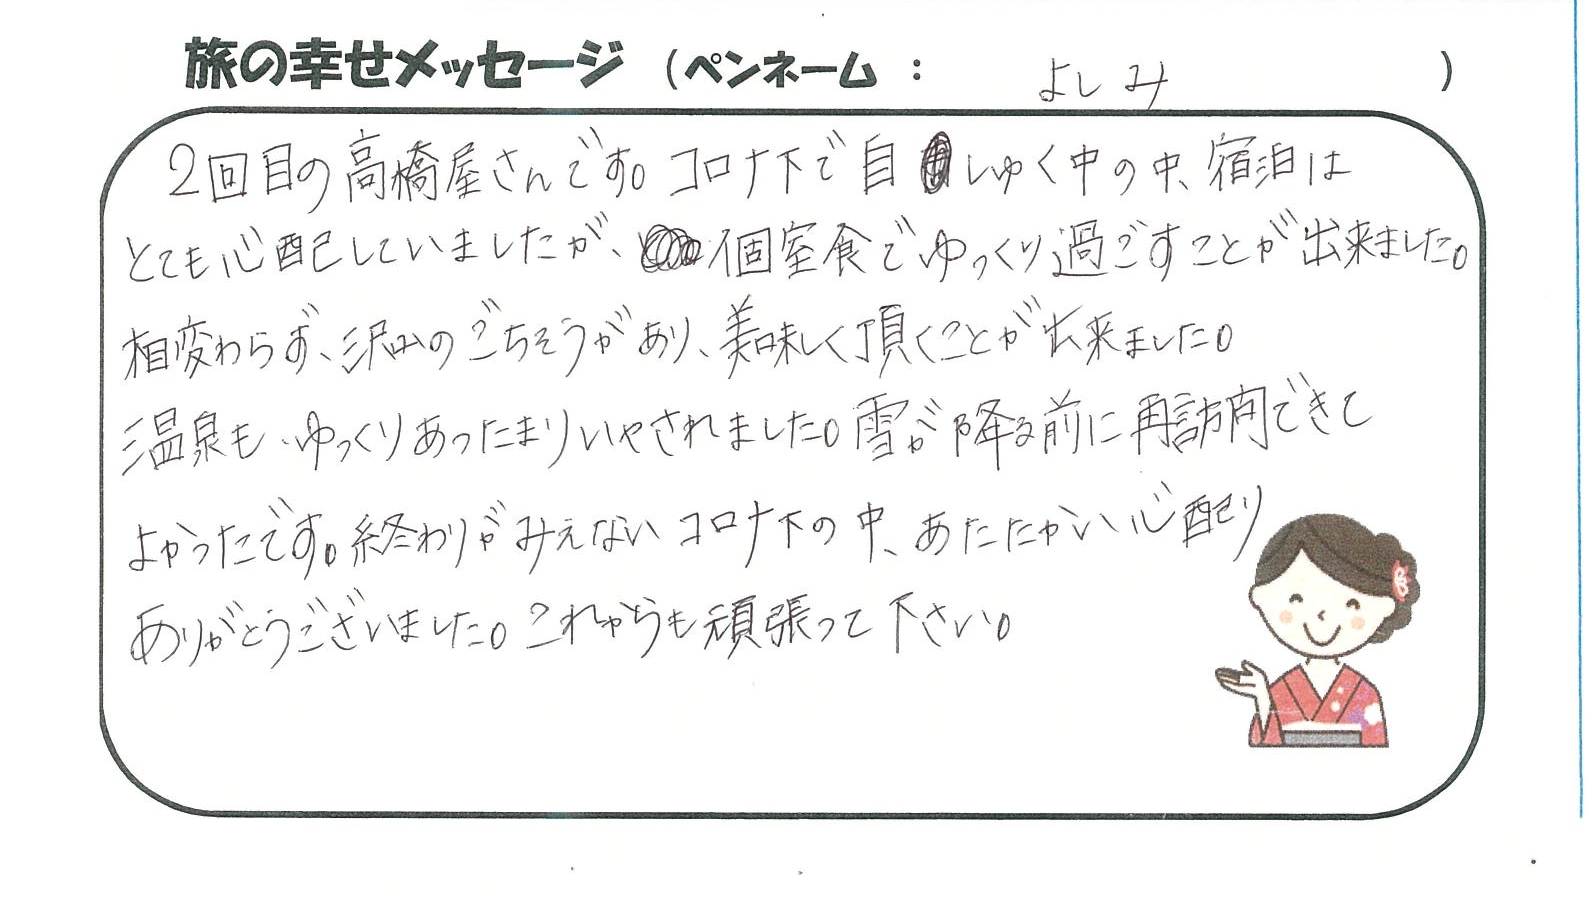 旅の幸せメッセージ （ペンネーム ： よしみ ）
2回目の高橋屋さんです。コロナ下で自しゅく中の中、宿泊は
とても心配していましたが、個室食でゆっくり過ごすことが出来ました。
相変わらず、沢山のごちそうがあり、美味しく頂くことが出来ました。
温泉も、ゆっくりあったまりいやされました。雪が降る前に再訪問できて
よかったです。終わりがみえないコロナ下の中、あたたかい心配り
ありがとうございました。これからも頑張って下さい。